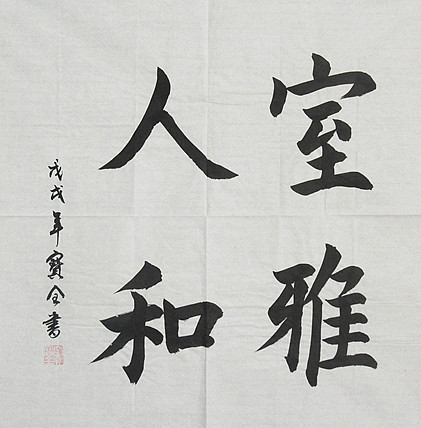 室雅
人和
戊戌年寶全書